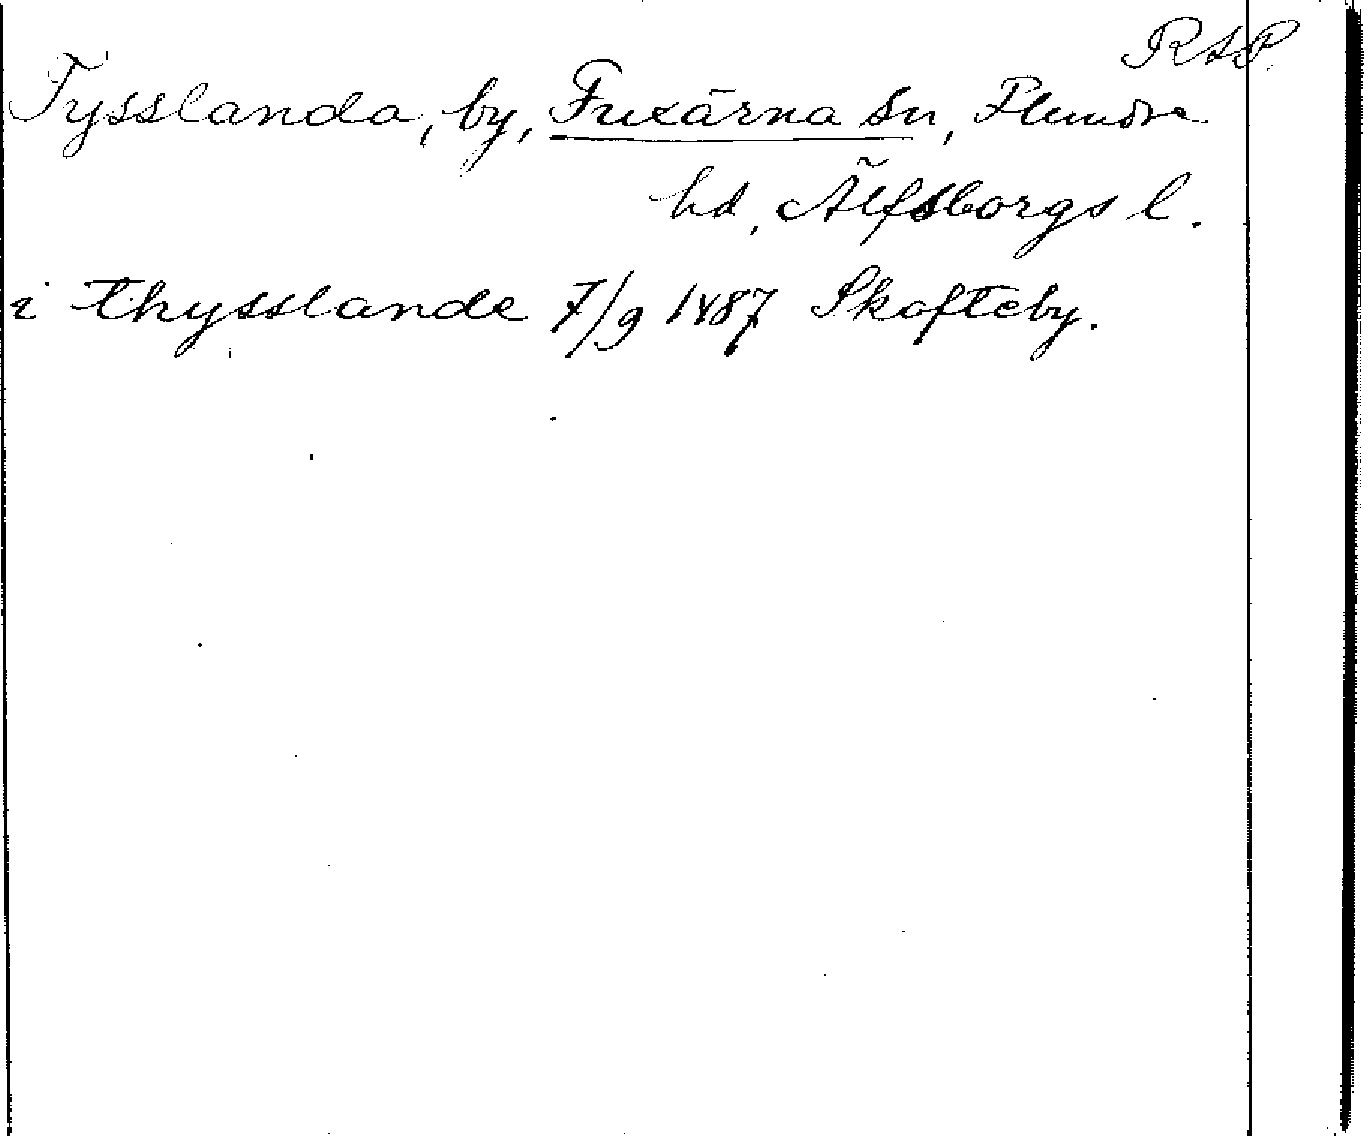 RAP.
Tysslanda, by, Fuxärna sn, Flundre
hd, Älfsborgs l.
i thysslande 7/9 1487 Skofteby.